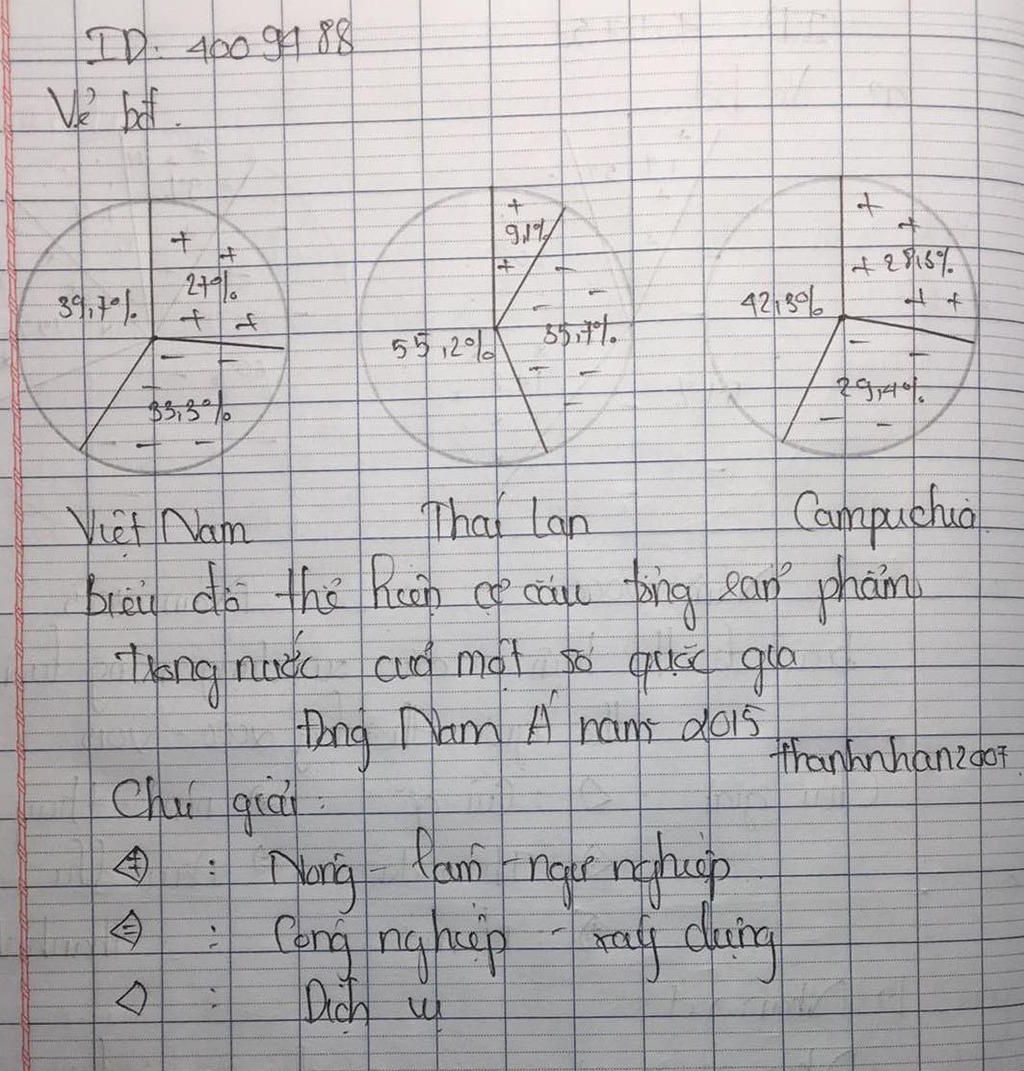 ID: 4009988
Vẽ bđ.
+
+
9,1%
+
+
+
+
27%
+ 28,3%
39,7%
+
42,3%
+
+
+
+
55,2%
35,7%
33,3%
29,4%
Việt Nam
Thái Lan
Campuchia
biểu đồ thể hiện cơ cấu tổng sản phẩm
trong nước của một số quốc gia
Đông Nam Á năm 2015
thanhnhan2007
Chú giải:
+ : Nông - lâm - ngư nghiệp
= : Công nghiệp - xây dựng
: Dịch vụ